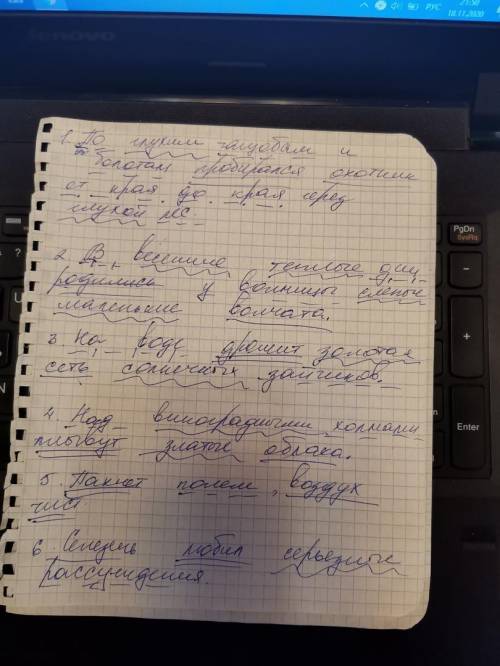 lenovo
21:50
РУС
18.11.2020
1. По глухим трущобам и
болотам пробирался охотник
от края до края через
глухой лес.
2. В весенние теплые дни
родились у волчицы слепые
маленькие волчата.
3. На воде дрожит золотая
сеть солнечных зайчиков.
4. Над виноградными холмами
плывут златые облака.
5. Пахнет полем, воздух
чист
6. Селезень любил серьезные
рассуждения.
PgDn
Enter